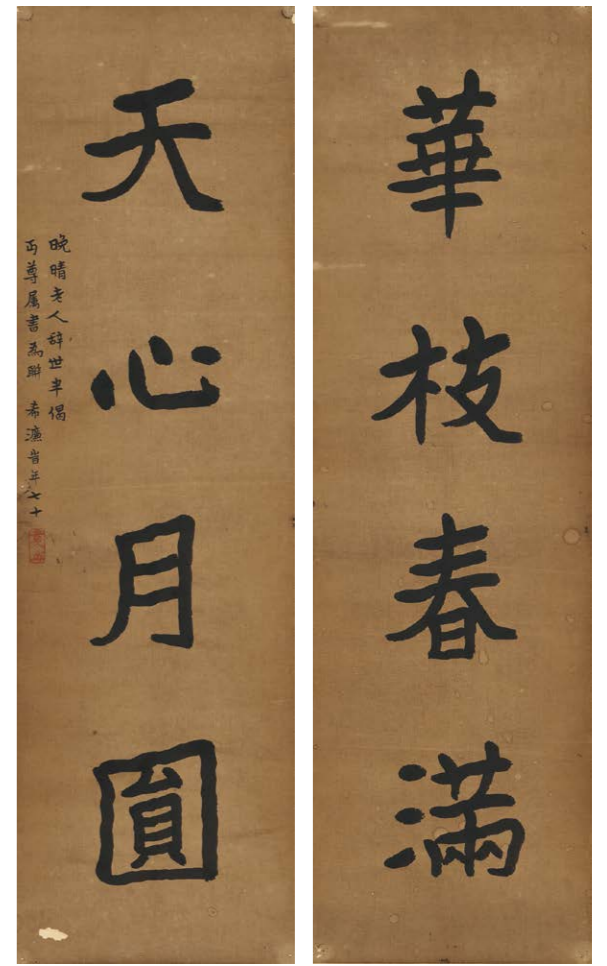 華枝春滿
天心月圓
晚晴老人辞世半偈
丏尊属書為聯 希濂時年七十